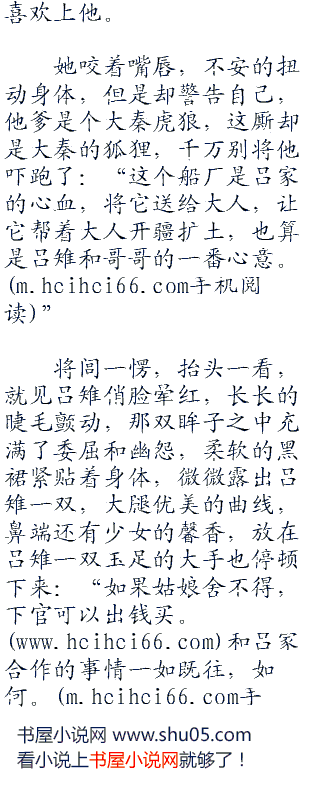 喜欢上他。
她咬着嘴唇，不安的扭
动身体，但是却警告自己，
他爹是个大秦虎狼，这厮却
是大秦的狐狸，千万别将他
吓跑了：“这个船厂是吕家
的心血，将它送给大人，让
它帮着大人开疆扩土，也算
是吕雉和哥哥的一番心意。
(m.hcihci66.com手机阅
读)”
将闾一愣，抬头一看，
就见吕雉俏脸晕红，长长的
睫毛颤动，那双眸子之中充
满了委屈和幽怨，柔软的黑
裙紧贴着身体，微微露出吕
雉一双，大腿优美的曲线，
鼻端还有少女的馨香，放在
吕雉一双玉足的大手也停顿
下来：“如果姑娘舍不得，
下官可以出钱买。
(www.hcihci66.com)和吕家
合作的事情一如既往，如
何。(m.hcihci66.com手
书屋小说网 www.shu05.com
看小说上书屋小说网就够了！